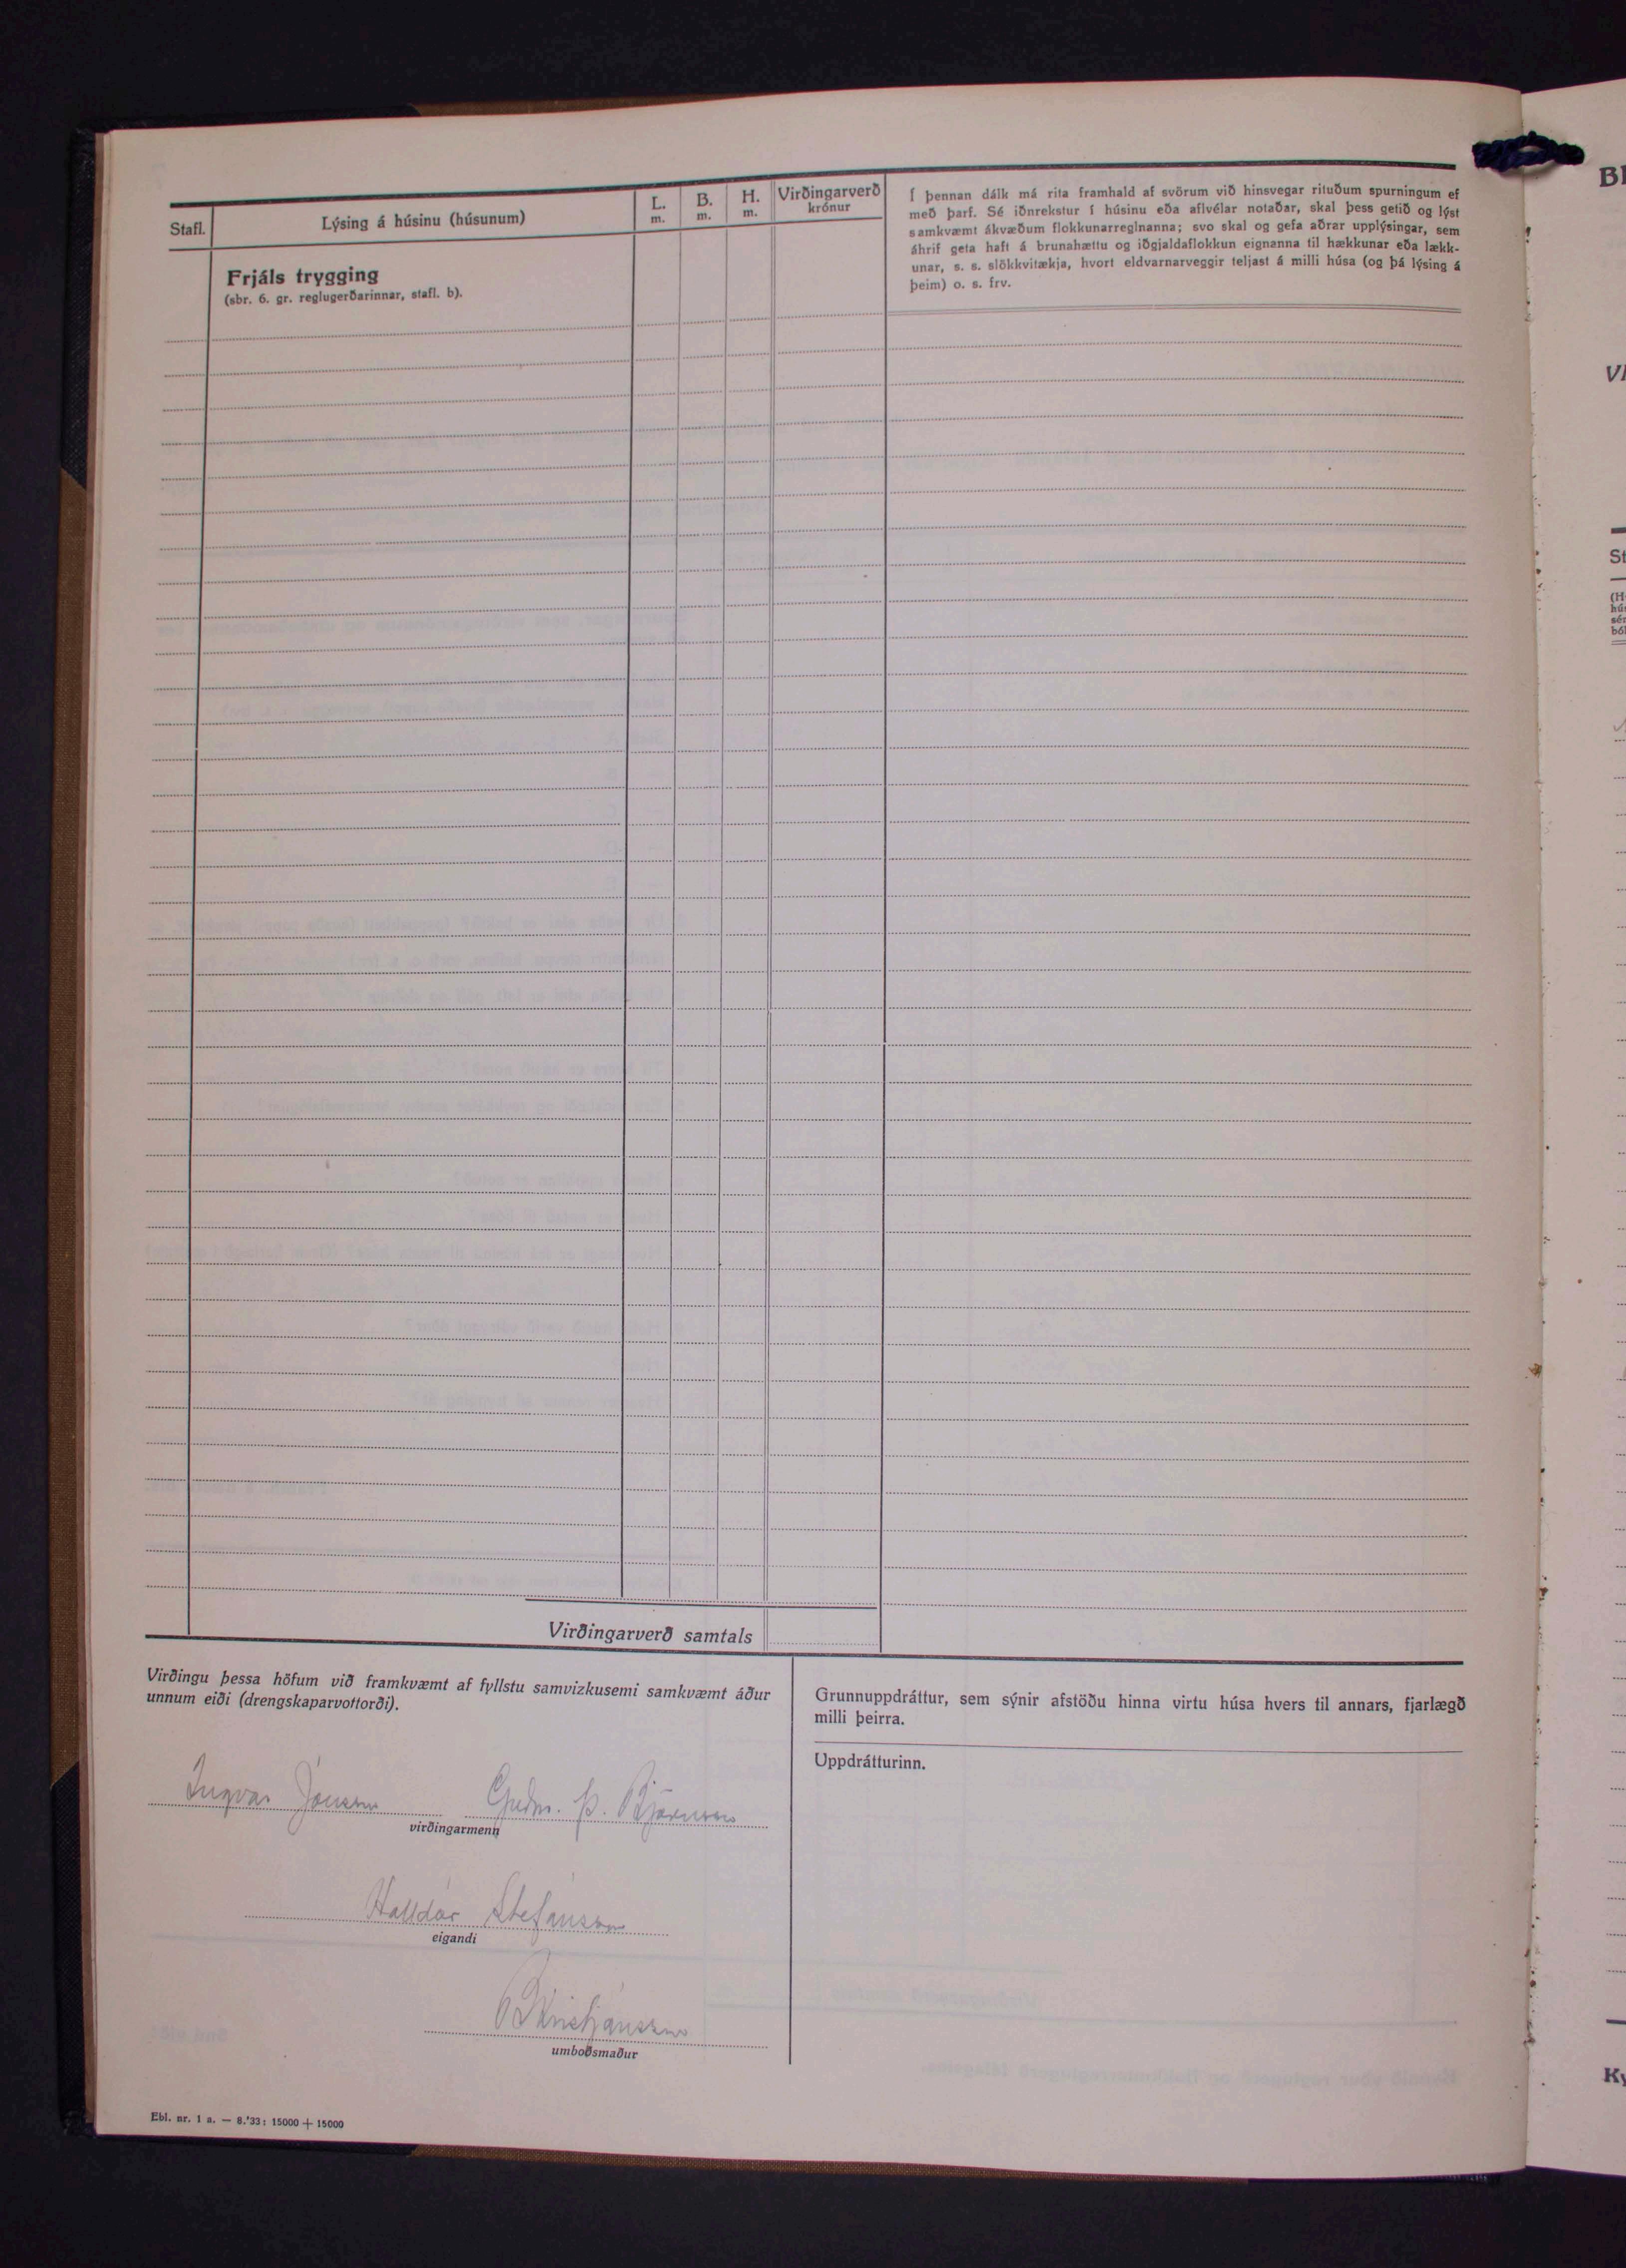 Stafl.
Lýsing á húsinu (húsunum)
L.
m.
B.
m.
H.
m.
Virðingarverð
krónur
Frjáls trygging
(sbr. 6. gr. reglugerðarinnar, stafl. b).
Í þennan dálk má rita framhald af svörum við hinsvegar rituðum spurningum ef
með þarf. Sé iðnrekstur í húsinu eða aflvélar notaðar, skal þess getið og lýst
samkvæmt ákvæðum flokkunarreglnanna; svo skal og gefa aðrar upplýsingar, sem
áhrif geta haft á brunahættu og iðgjaldaflokkun eignanna til hækkunar eða lækk-
unar, s. s. slökkvitækja, hvort eldvarnarveggir teljast á milli húsa (og þá lýsing á
þeim) o. s. frv.
Virðingarverð samtals
Virðingu þessa höfum við framkvæmt af fyllstu samvizkusemi samkvæmt áður
unnum eiði (drengskaparvottorði).
Ingvar Jónsson Guðm. Þ. Björnsson
virðingarmenn
Halldór Stefánsson
eigandi
Kristjánsson
umboðsmaður
Grunnuppdráttur, sem sýnir afstöðu hinna virtu húsa hvers til annars, fjarlægð
milli þeirra.
Uppdrátturinn.
Ebl. nr. 1 a. — 8.'33: 15000 + 15000